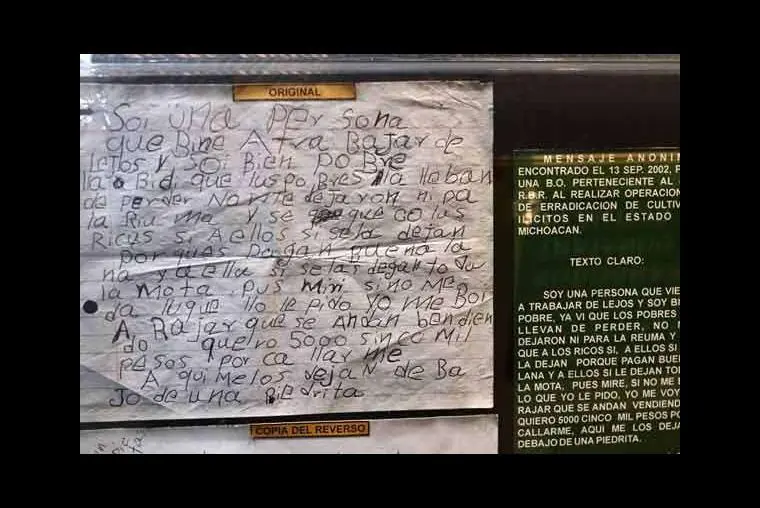 ORIGINAL
Soi una persona
que Bine A trva Bajar de
lejos y soi Bien poBre
lla Bidi que lus poBres lla lleban
de perder No me dejaron ni pa
la Riu ma y se que co lus
Ricus si Aellos si sela dejan
por ques pagan buena la
na y a ellu si se las dega to da
la Mota pus Miri si no Me
da luque llo le pido yo me Boi
A RaJar que se Andan bendien
do quelro 5000 sinco Mil
pesos por ca llar me
A qui Melos dejaN de Ba
Jo de una piedrita
COPIA DEL REVERSO
MENSAJE ANONIM
ENCONTRADO EL 13 SEP. 2002, P
UNA B.O. PERTENECIENTE AL
R.B.R. AL REALIZAR OPERACION
DE ERRADICACION DE CULTIV
ILICITOS EN EL ESTADO
MICHOACAN.
TEXTO CLARO:
SOY UNA PERSONA QUE VIE
A TRABAJAR DE LEJOS Y SOY BI
POBRE, YA VI QUE LOS POBRES
LLEVAN DE PERDER, NO M
DEJARON NI PARA LA REUMA Y
QUE A LOS RICOS SI, A ELLOS SI
LA DEJAN PORQUE PAGAN BUE
LANA Y A ELLOS SI LE DEJAN TO
LA MOTA, PUES MIRE, SI NO ME
LO QUE YO LE PIDO, YO ME VOY
RAJAR QUE SE ANDAN VENDIEND
QUIERO 5000 CINCO MIL PESOS PO
CALLARME, AQUI ME LOS DEJA
DEBAJO DE UNA PIEDRITA.